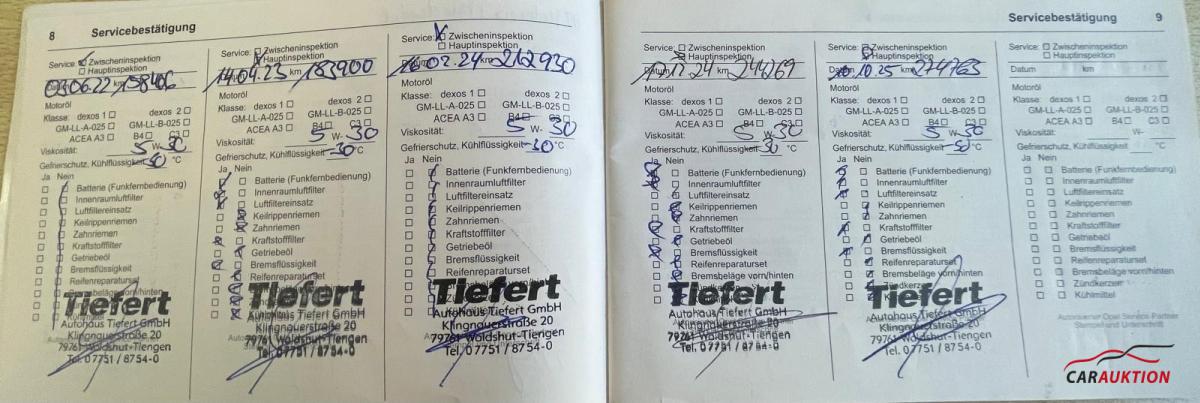 8 Servicebestätigung
Service: Zwischeninspektion
Hauptinspektion
Datum 03.06.22 km 158406
Motoröl
Klasse: dexos 1 dexos 2
GM-LL-A-025 GM-LL-B-025
ACEA A3 B4 C3
Viskosität: 5 W- 30
Gefrierschutz, Kühlflüssigkeit -30 °C
Ja Nein
Batterie (Funkfernbedienung)
Innenraumluftfilter
Luftfiltereinsatz
Keilrippenriemen
Zahnriemen
Kraftstofffilter
Getriebeöl
Bremsflüssigkeit
Reifenreparaturset
Tiefert
Autohaus Tiefert GmbH
Klingnauerstraße 20
79761 Waldshut-Tiengen
Tel. 07751 / 8754-0
Service: Zwischeninspektion
Hauptinspektion
Datum 14.04.23 km 183900
Motoröl
Klasse: dexos 1 dexos 2
GM-LL-A-025 GM-LL-B-025
ACEA A3 B4 C3
Viskosität: 5 W- 30
Gefrierschutz, Kühlflüssigkeit -30 °C
Ja Nein
Batterie (Funkfernbedienung)
Innenraumluftfilter
Luftfiltereinsatz
Keilrippenriemen
Zahnriemen
Kraftstofffilter
Getriebeöl
Bremsflüssigkeit
Reifenreparaturset
Tiefert
Autohaus Tiefert GmbH
Klingnauerstraße 20
79761 Waldshut-Tiengen
Tel. 07751 / 8754-0
Service: Zwischeninspektion
Hauptinspektion
02.24 212930
Motoröl
Klasse: dexos 1 dexos 2
GM-LL-A-025 GM-LL-B-025
ACEA A3 B4 C3
Viskosität: 5 W- 30
Gefrierschutz, Kühlflüssigkeit -30 °C
Ja Nein
Batterie (Funkfernbedienung)
Innenraumluftfilter
Luftfiltereinsatz
Keilrippenriemen
Zahnriemen
Kraftstofffilter
Getriebeöl
Bremsflüssigkeit
Reifenreparaturset
Tiefert
Autohaus Tiefert GmbH
Klingnauerstraße 20
79761 Waldshut-Tiengen
Tel. 07751 / 8754-0
Servicebestätigung 9
Service: Zwischeninspektion
Hauptinspektion
Datum 10.12.24 km 244769
Motoröl
Klasse: dexos 1 dexos 2
GM-LL-A-025 GM-LL-B-025
ACEA A3 B4 C3
Viskosität: 5 W- 30
Gefrierschutz, Kühlflüssigkeit -30 °C
Ja Nein
Batterie (Funkfernbedienung)
Innenraumluftfilter
Luftfiltereinsatz
Keilrippenriemen
Zahnriemen
Kraftstofffilter
Getriebeöl
Bremsflüssigkeit
Reifenreparaturset
Bremsbeläge vorn/hinten
Tiefert
Autohaus Tiefert GmbH
Klingnauerstraße 20
79761 Waldshut-Tiengen
Tel. 07751 / 8754-0
Service: Zwischeninspektion
Hauptinspektion
10.25 274765
Motoröl
Klasse: dexos 1 dexos 2
GM-LL-A-025 GM-LL-B-025
ACEA A3 B4 C3
Viskosität: 5 W- 30
Gefrierschutz, Kühlflüssigkeit -30 °C
Ja Nein
Batterie (Funkfernbedienung)
Innenraumluftfilter
Luftfiltereinsatz
Keilrippenriemen
Zahnriemen
Kraftstofffilter
Getriebeöl
Bremsflüssigkeit
Reifenreparaturset
Bremsbeläge vorn/hinten
Zündkerzen
Tiefert
Autohaus Tiefert GmbH
Klingnauerstraße 20
79761 Waldshut-Tiengen
Tel. 07751 / 8754-0
Service: Zwischeninspektion
Hauptinspektion
Datum km
Motoröl
Klasse: dexos 1 dexos 2
GM-LL-A-025 GM-LL-B-025
ACEA A3 B4 C3
Viskosität: W-
Gefrierschutz, Kühlflüssigkeit °C
Ja Nein
Batterie (Funkfernbedienung)
Innenraumluftfilter
Luftfiltereinsatz
Keilrippenriemen
Zahnriemen
Kraftstofffilter
Getriebeöl
Bremsflüssigkeit
Reifenreparaturset
Bremsbeläge vorn/hinten
Zündkerzen
Kühlmittel
Autorisierter Opel Service-Partner
Stempel und Unterschrift
CARAUKTION